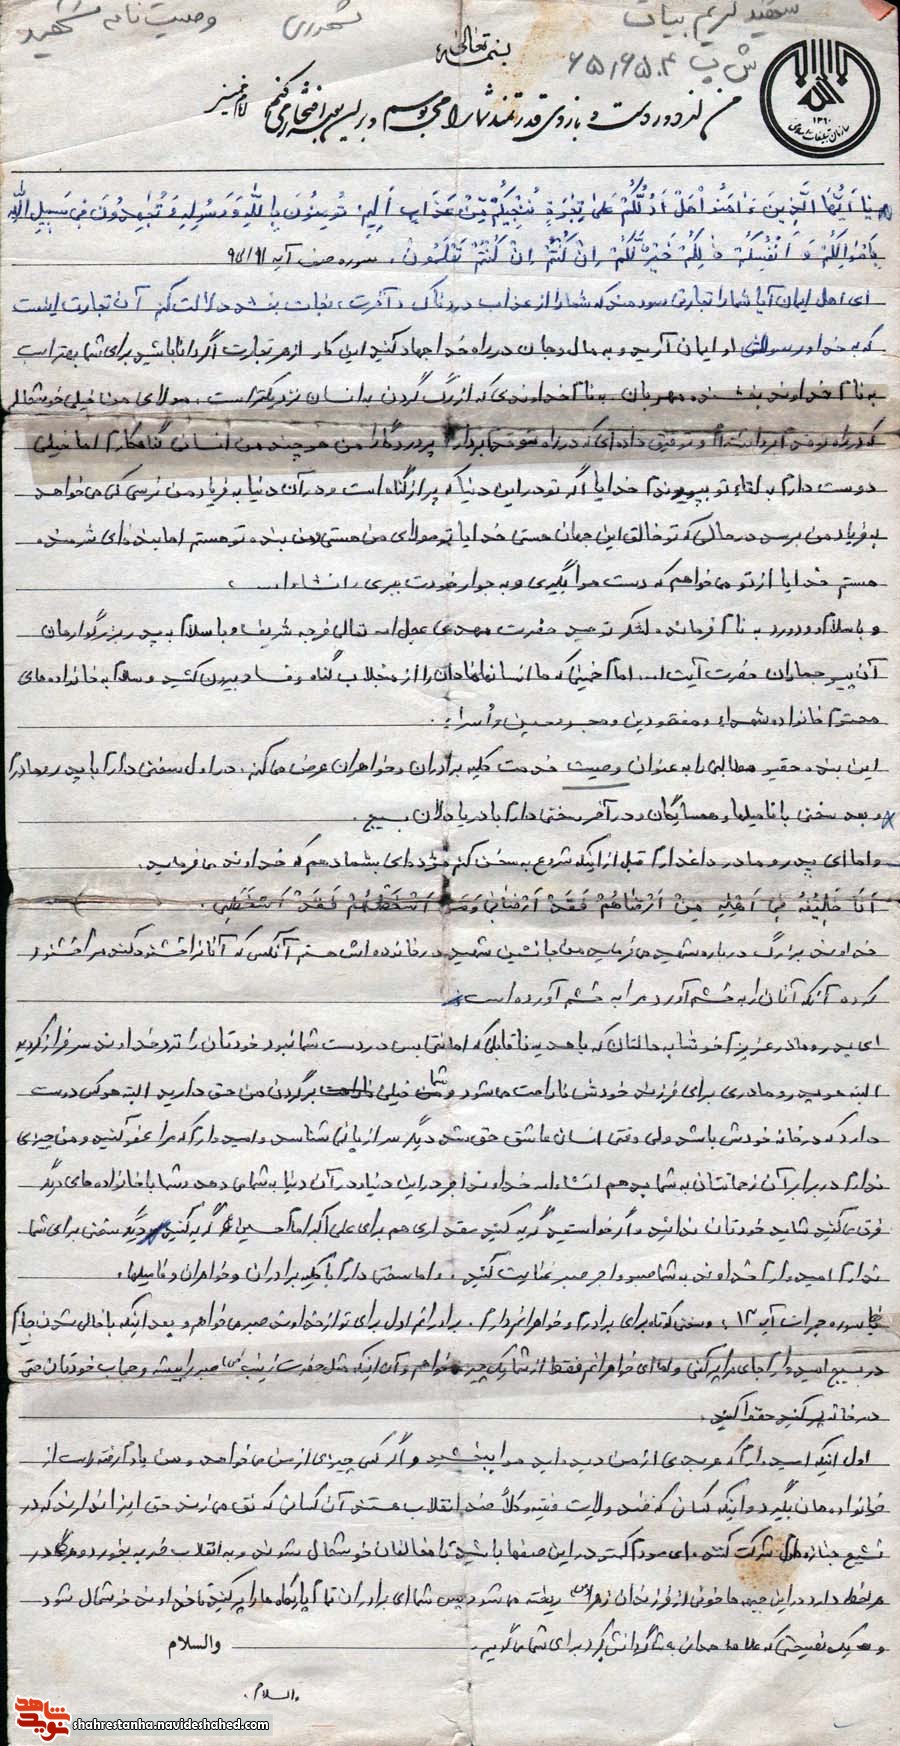 شهید کریم بیات شهرری وصیت نامه شهید
بسمه تعالی
ش پ ۶۵۱۶۵۰۴
من از دور دست و بازوی قدرتمند شما را می‌بوسم و بر این بوسه افتخار می‌کنم امام خمینی
۱۳۶۰ سازمان تبلیغات اسلامی
یا اَیُّهَا الَّذینَ ءَامَنُوا هَلْ اَدُلُّکُمْ عَلی تِجرَةٍ تُنْجِیکُمْ مِّنْ عَذَابٍ اَلِیمٍ تُؤمِنُونَ بِاللهِ وَ رَسُولِهِ وَ تُجهِدُونَ فِی سَبِیلِ اللهِ
بِاَمْوَالِکُمْ وَ اَنْفُسِکُمْ ذلِکُمْ خَیْرٌ لَّکُمْ اِنْ کُنْتُمْ تَعْلَمُونَ . سوره صف آیه
ای اهل ایمان آیا شما را تجارتی سودمند که شما را از عذاب دردناک آخرت نجات بخشد دلالت کنم آن تجارت اینست
که به خدا و رسول او ایمان آرید و به مال و جان در راه خدا جهاد کنید این کار از هر تجارت اگر دانا باشید برای شما بهتر است
به نام خداوند بخشنده مهربان به نام خداوندی که از رگ گردن به انسان نزدیکتر است . مولای من خیلی خوشحالم
که در راه تو قدم و توفیق داده‌ای که در راه تو قدم بردارم پروردگارا من هر چند من انسانی گناهکارم اما خیلی
دوست دارم به لقاء تو بپیوندم خدایا اگر تو در این دنیا که پر از گناه است و در آن دنیا به فریاد من نرسی کی می‌خواهد
به فریاد من برسد در حالی که تو خالق این جهان هستی خدایا تو مولای من هستی و من بنده تو هستم اما بنده‌ای شرمنده
هستم خدایا از تو می‌خواهم که دست مرا بگیری و به جوار خودت ببری . انشاءا...
و با سلام و درود به نام فرمانده لشکر توحید حضرت مهدی عجل اله تعالی فرجه شریف و با سلام به پدر بزرگوارمان
آن پیر جماران حضرت آیت ا... امام خمینی که ما انسانها را از منجلاب گناه و فساد بیرون کشید و سلام به خانواده‌های
محترم خانواده شهداء و مفقودین و مجروحین و اسراء .
این بنده حقیر مطالبی را به عنوان وصیت خدمت کلیه برادران و خواهران عرض می‌کنم . در اول سخنی دارم با پدر و مادرم
و بعد سخنی با فامیلها و همسایگان و در آخر سخنی دارم با دریادلان بسیج .
و اما ای پدر و مادر داغدارم قبل از اینکه شروع به سخن کنم مژده‌ای بشما دهم که خداوند می‌فرماید .
اَنَا خَلِیْفَهُ فِی اَهْلِهِ مِنْ اَرْضاهُمْ فَقَدْ اَرْضانِی وَ مَنْ اَسْخَطَهُمْ فَقَدْ اَسْخَطَنِی .
خداوند بزرگ درباره شهید می‌فرماید من جانشین شهید در خانواده‌اش هستم آنکس که آنان را خشنود کند مرا خشنود
کرده و آنکه آنان را به خشم آورد مرا به خشم آورده است
ای پدر و مادر عزیزم خوشا به حالتان که با هدیه ناقابلی که امانتی بس در دست شما نبود خودتان را نزد خداوند سرفراز کردید
البته هر پدر و مادری برای فرزند خودش ناراحت می‌شود و شما خیلی بر گردن من حق دارید البته هر کس دوست
دارد که در خانه خودش باشد ولی وقتی انسان عاشق حق شد دیگر سر از پا نمی‌شناسد و امیدوارم که مرا عفو کنید و من چیزی
ندارم در برابر آن زحماتتان به شما بدهم انشاءاله خداوند اجر در این دنیا و در آن دنیا به شما می‌دهد و شما با خانواده‌های دیگر
فرق می‌کنید شاید خودتان ندانید و اگر خواستید گریه کنید مقداری هم برای علی اکبر امام حسین گریه کنید دیگر سخنی برای شما
ندارم امیدوارم خداوند به شما صبر و اجر صبر عنایت کنید . و اما سخنی دارم با کلیه برادران و خواهران و فامیلها .
سوره حجرات آیه ۱۳ : و سخنی کوتاه برای برادرم و خواهرانم دارم . برادرانم اول برای تو از خداوند صبر می‌خواهم و بعد اینکه با خالی شدن جایم
در بسیج امیدوارم جای مرا پر کنی و اما ای خواهرانم فقط از شما یک چیز می‌خواهم و آن اینکه مثل حضرت زینب (س) صبر را پیشه و حجاب خودتان حتی
در خانه حفظ کنید .
اول اینکه امیدوارم اگر هر بدی از من دیده‌اید مرا ببخشید و اگر کسی چیزی از من می‌خواهد و من یادم رفته است از
خانواده‌مان بگیرد و اینکه کسانی که ضد ولایت فقیه و کلاً ضد انقلاب هستند آن کسانی که نق می‌زنند حتی اینرا ندارند که در
تشیع جنازه‌ام شرکت کنند . ای مردم کمتر در این صفها باشید تا مخالفان خوشحال نشوند و به انقلاب ضربه بخورد و هر
لحظه دارد در این جبهه‌ها خونی از فرزندان زهرا (س) ریخته می‌شود پس شما ای برادران تمام پایگاه‌ها را پر کنید تا خداوند خوشحال شود
و یک نصیحتی که به شاگردانش کرد برای شما می‌گویم . والسلام
والسلام .
نوید شاهد
shahrestanha.navideshahed.com